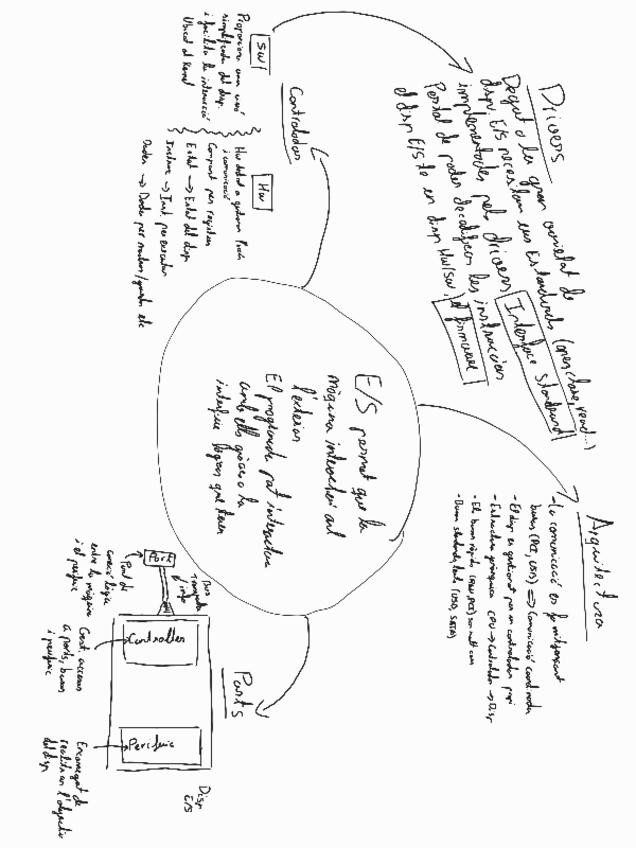 Drivers
Degut a la gran varietat de
disp E/S necesitem uns Estandards (open, close, read...)
implementades pels drivers Interface Standard
Portal de poder decodificar les instruccions
el disp E/S te en disp HW/SW, el firmware
Controladors
SW
Proporciona una visió
simplificada del disp
i facilita la interacció
Ubicat al Kernel
HW
HW dedicat a gestionar
i comunicació
Compost per registres
Estat → Estat del disp
Instruc → Inst. per executar
Dades → Dades per rebre/guardar etc
E/S permet que la
màquina interactuï amb
l'exterior
El programador pot interactuar
amb ells gràcies a la
interfície lògica que tenen
Arquitectura
- La comunicació es fa mitjançant
busos (PCI, USB) ⇒ Comunicació
- El disp es gestionat per un controlador propi
- Estructura jeràrquica CPU → Controlador → Disp
- El busos ràpids (PCI) son molt cars
- Busos standards, lents (USB, SATA)
Parts
Port
Bus
Transporta
info
Port de
connexió lògica
entre la màquina
i el perifèric
Controller
Gest. accesos
a ports, busos
i perifèric
Periferic
Encarregat de
realitzar l'objectiu
del disp
Disp
E/S